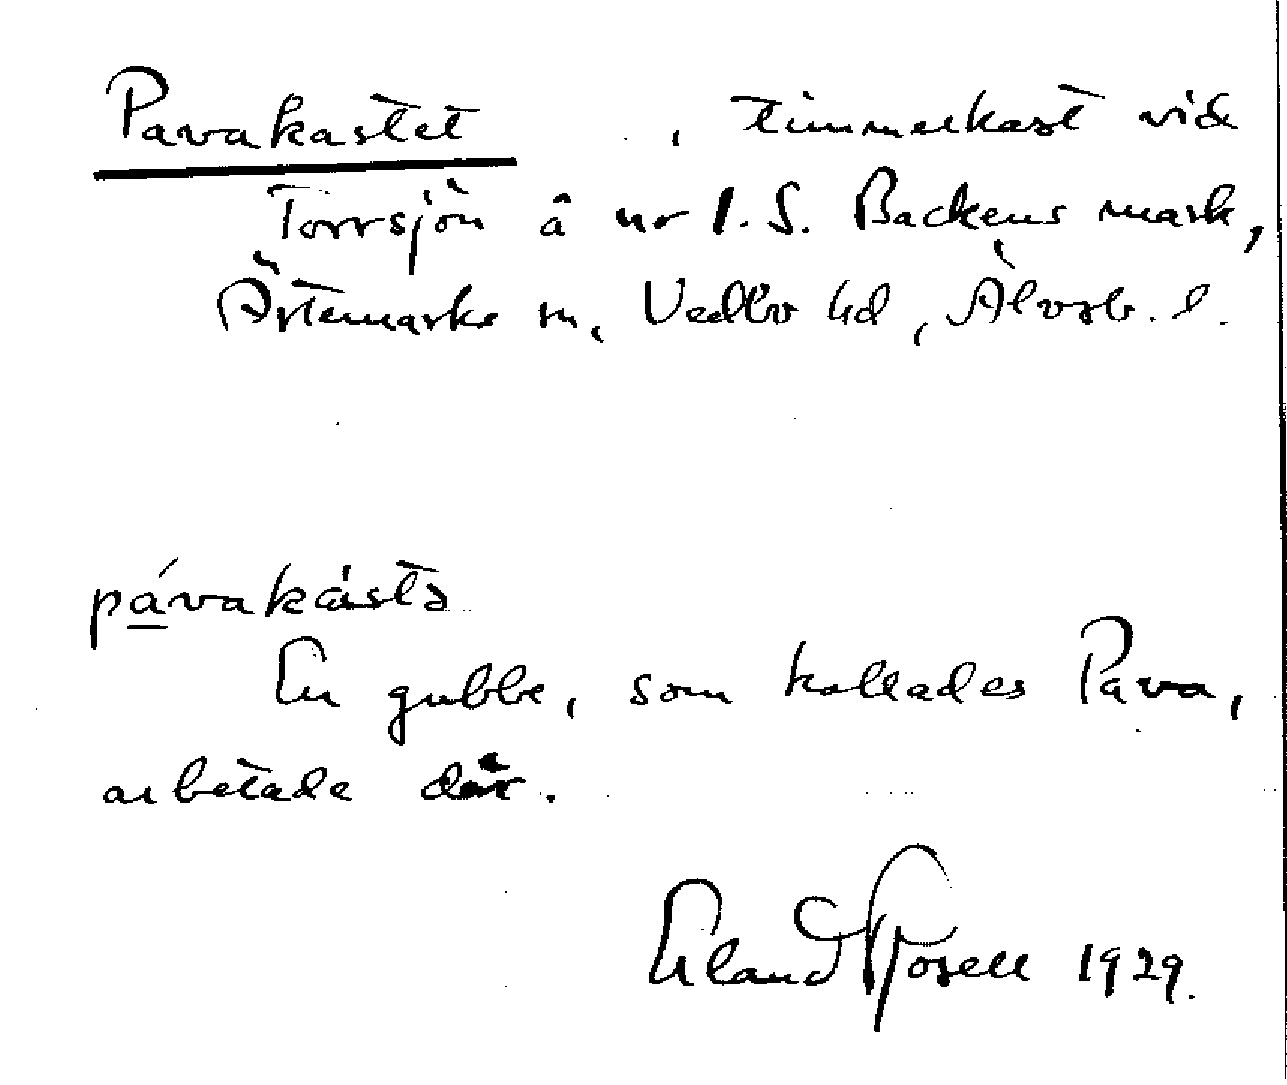 Pavakastet , timmerkast vid
Torrsjön å nr 1. S. Backens mark,
Ärtemarks sn, Vedbo hd, Älvsb. l.
pávakástə
En gubbe, som kallades Pava,
arbetade där.
Erland Rosell 1929.